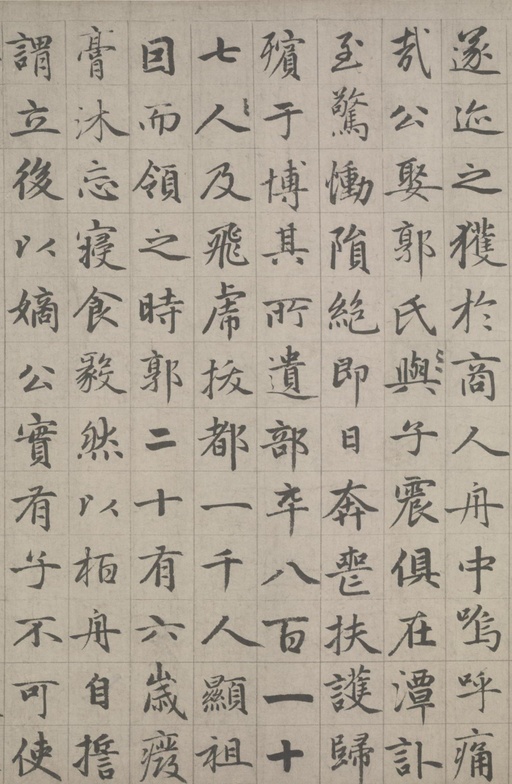 遂迹之獲於商人舟中嗚呼痛
哉公娶郭氏與子震俱在潭訃
至驚慟隕絶即日奔喪扶護歸
殯于博其所遺部卒八百一十
七人及飛虎拔都一千人顯祖
因而領之時郭二十有六歲癈
膏沐忘寢食毅然以柏舟自誓
謂立後以嫡公實有子不可使